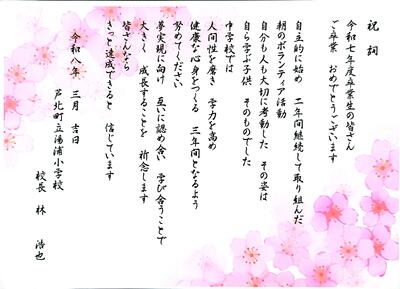 祝詞
令和七年度卒業生の皆さん
ご卒業 おめでとうございます
自主的に始め 二年間継続して取り組んだ
朝のボランティア活動
自分も人も大切に考動した その姿は
自ら学ぶ子供 そのものでした
中学校では
人間性を磨き 学力を高め
健康な心身をつくる 三年間となるよう
努めてください
夢実現に向け 互いに認め合い 学び合うことで
大きく 成長することを 祈念します
皆さんなら
きっと達成できると 信じています
令和八年 三月 吉日
芦北町立湯浦小学校
校長 林 浩也